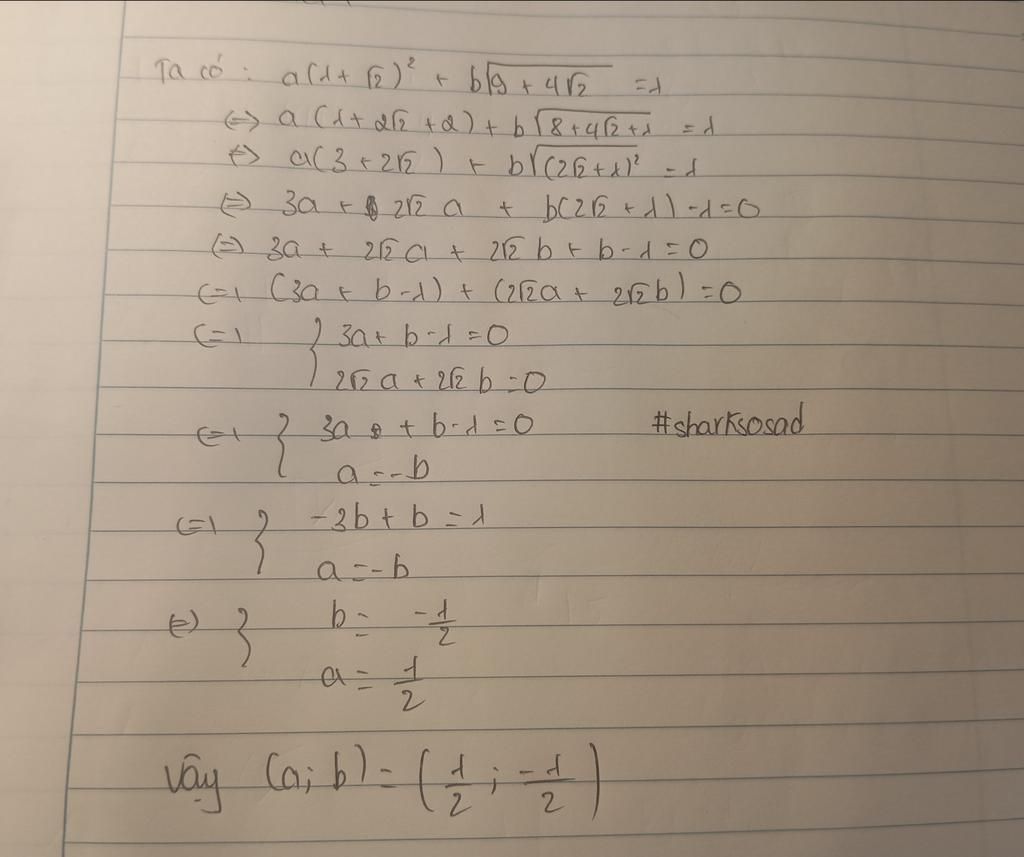 Ta có : a(1+√2)² + b√(9 + 4√2) = 1
<=> a (1+2√2+2) + b√(8+4√2+1) = 1
<=> a(3+2√2) + b√((2√2+1)²) = 1
<=> 3a + 2√2 a + b(2√2 + 1) - 1 = 0
<=> 3a + 2√2 a + 2√2 b + b - 1 = 0
<=> (3a + b - 1) + (2√2a + 2√2b) = 0
<=> { 3a + b - 1 = 0
2√2 a + 2√2 b = 0
<=> { 3a + b - 1 = 0 #sharksosad
a = -b
<=> { -3b + b = 1
a = -b
<=> { b = -1/2
a = 1/2
Vậy (a; b) = (1/2 ; -1/2)